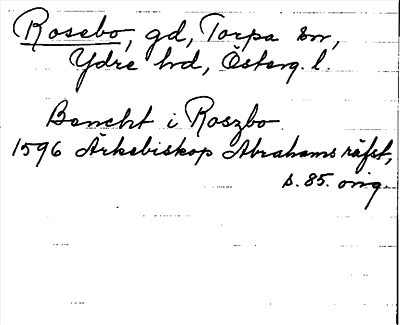 Rosebo, gd, Torpa sn,
Ydre hd, Österg. l.
Bencht i Roszbo
1596 Ärkebiskop Abrahams räfst,
s. 85. orig.